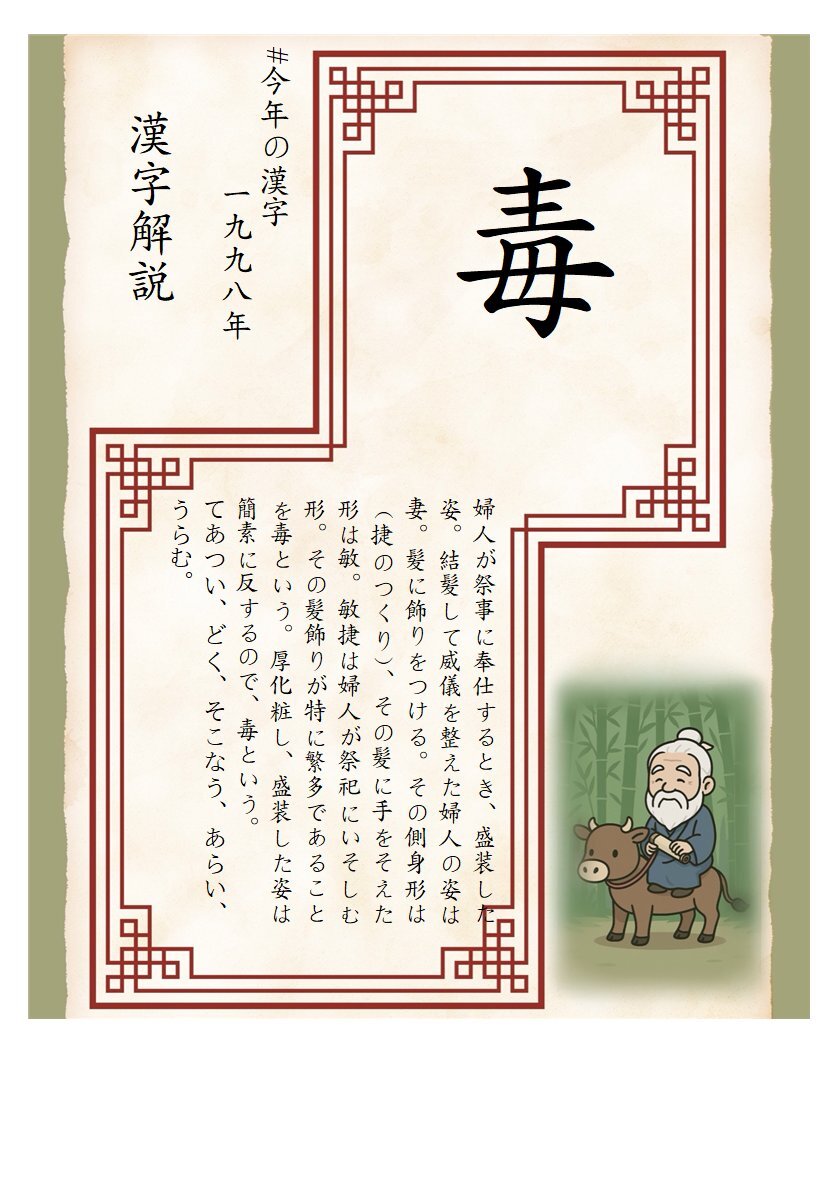 毒
#今年の漢字
一九九八年
漢字解説
婦人が祭事に奉仕するとき、盛装した
姿。結髪して威儀を整えた婦人の姿は
妻。髪に飾りをつける。その側身形は
（捷のつくり）、その髪に手をそえた
形は敏。敏捷は婦人が祭祀にいそしむ
形。その髪飾りが特に繁多であること
を毒という。厚化粧し、盛装した姿は
簡素に反するので、毒という。
てあつい、どく、そこなう、あらい、
うらむ。